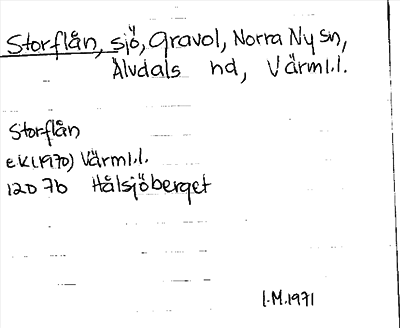 Storflån, sjö, Gravol, Norra Ny sn,
Älvdals hd, Värml.l.
Storflån
ek(1970) Värml.l.
12D 7b Hålsjöberget
I.M.1971